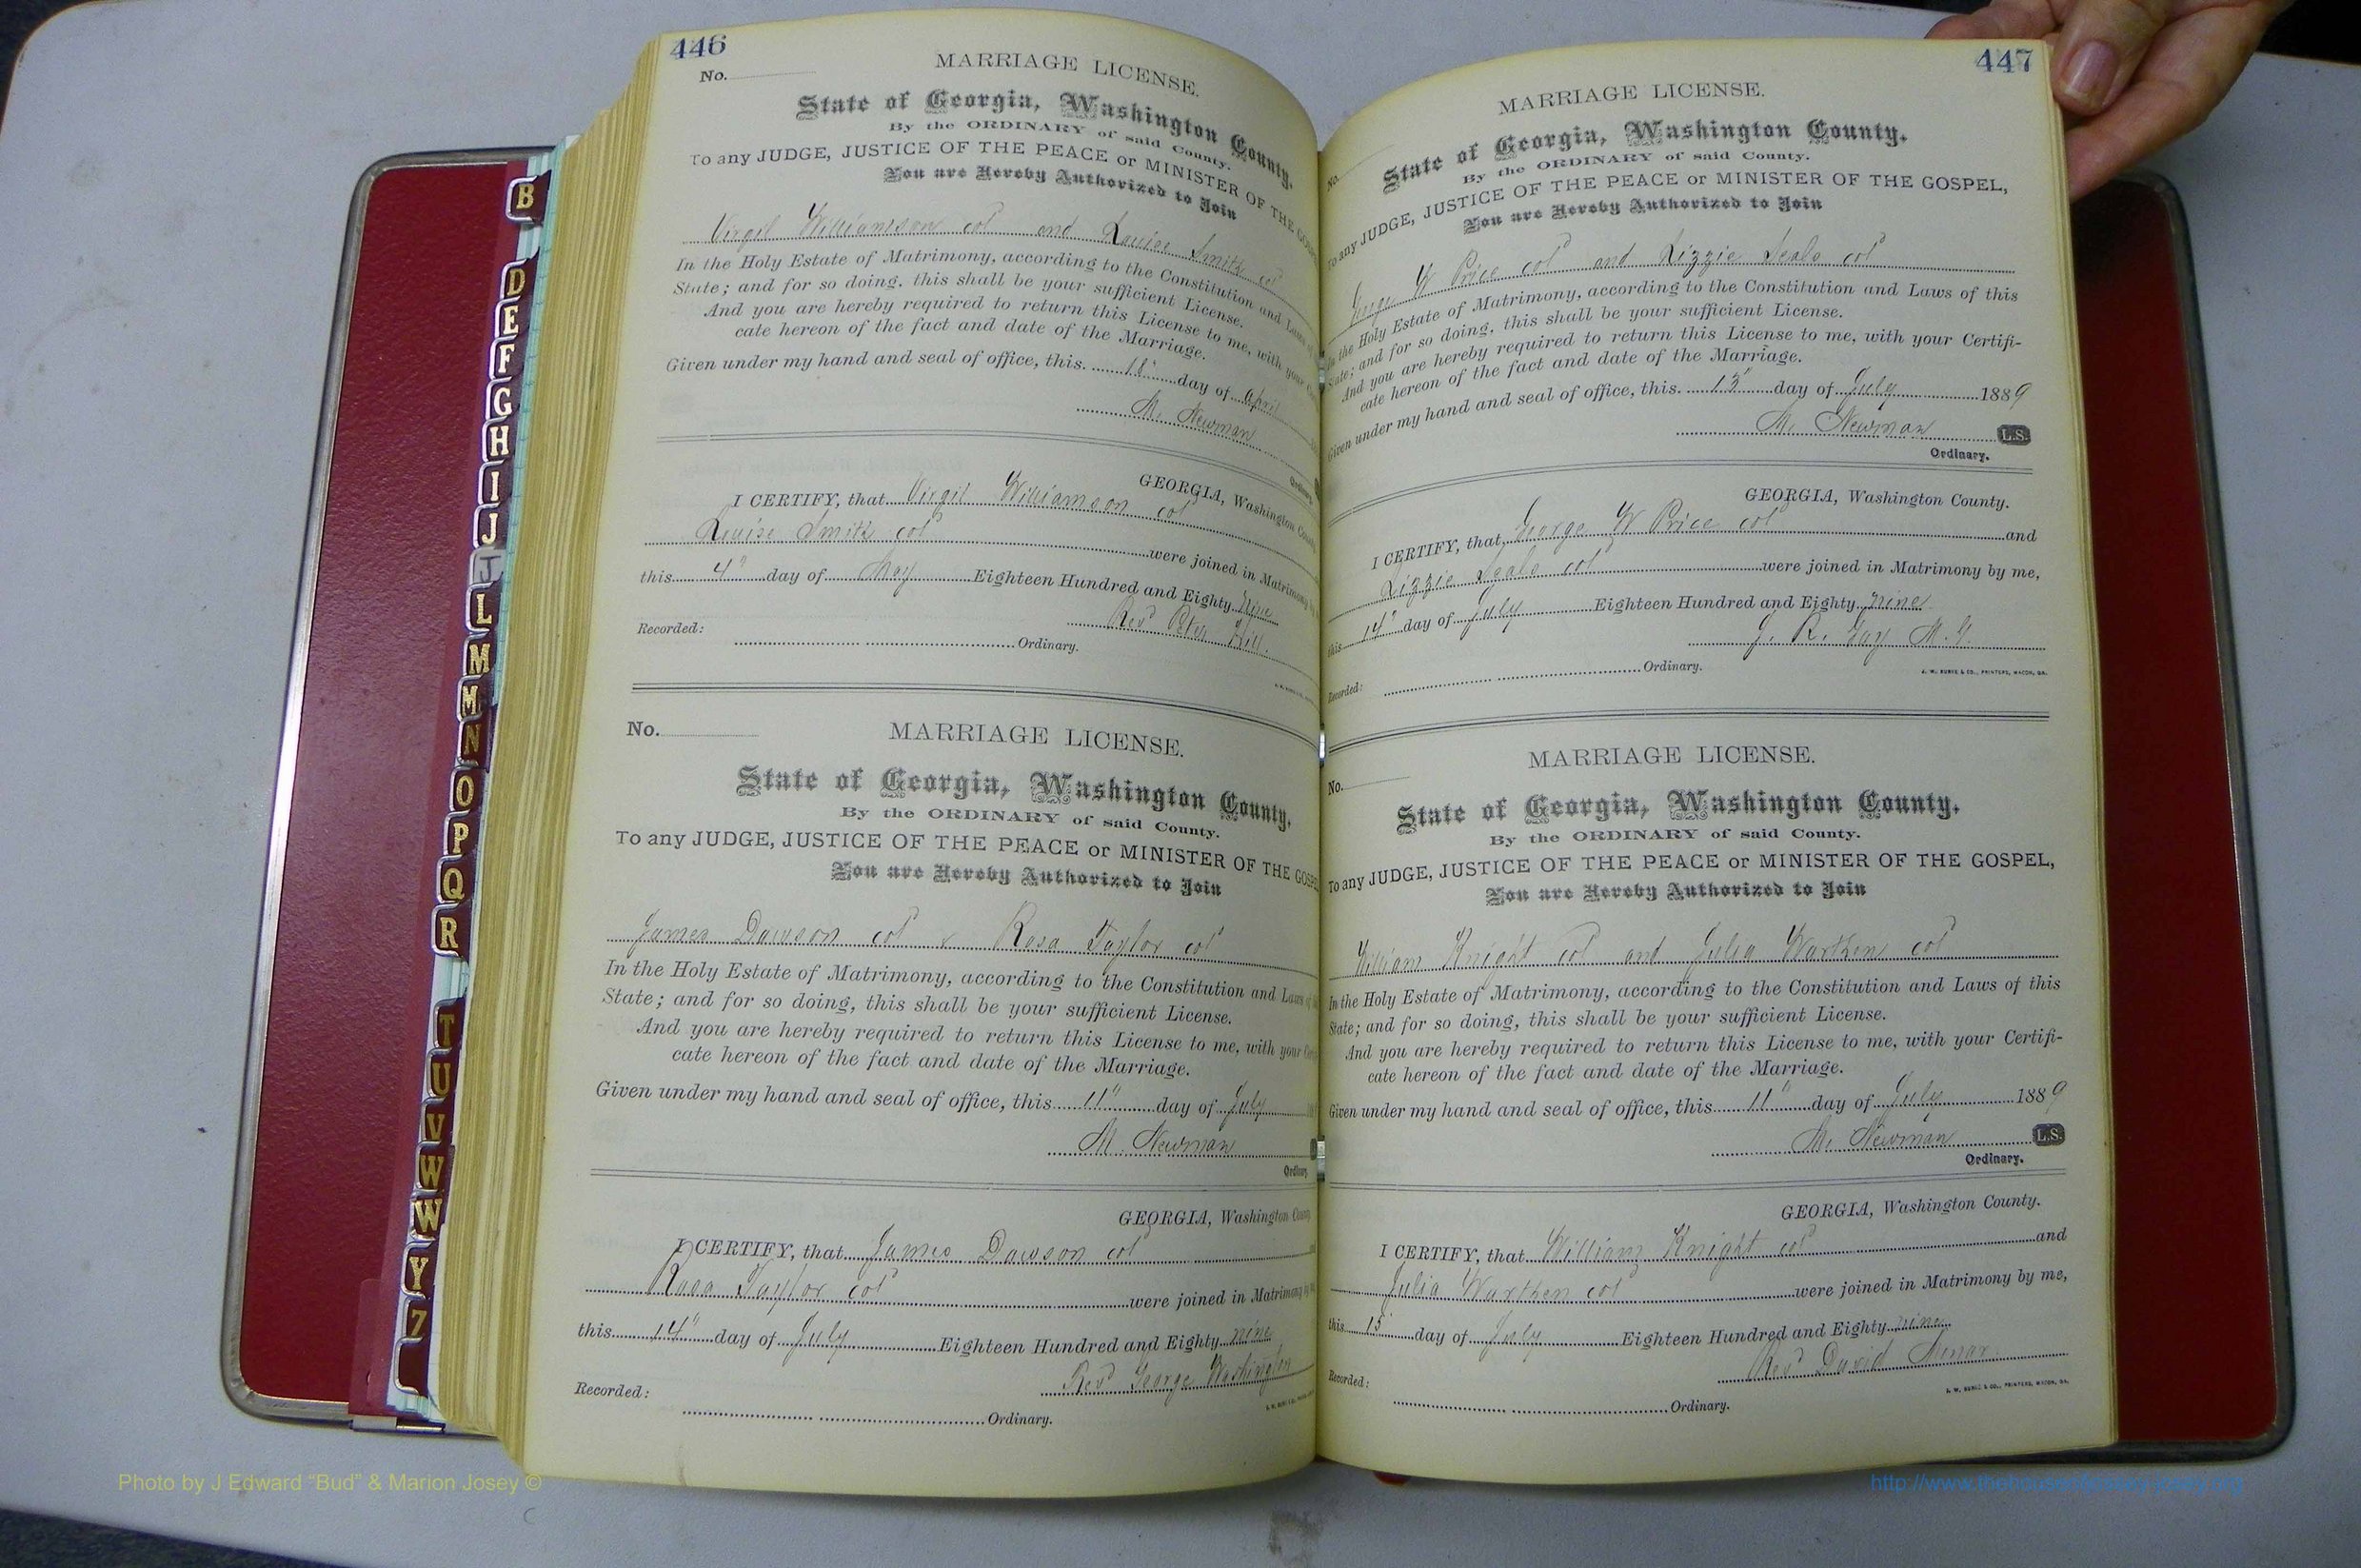 446
No.
MARRIAGE LICENSE.
State of Georgia, Washington County.
By the ORDINARY of said County.
To any JUDGE, JUSTICE OF THE PEACE or MINISTER OF THE
You are Hereby Authorized to Join
Virgil Williamson col and Louise Smith col
In the Holy Estate of Matrimony, according to the Constitution and Laws of
State; and for so doing, this shall be your sufficient License.
And you are hereby required to return this License to me, with your
cate hereon of the fact and date of the Marriage.
Given under my hand and seal of office, this 18" day of April
M. Newman
Ordinary
GEORGIA, Washington County
I CERTIFY, that Virgil Williamson col
Louise Smith col were joined in Matrimony
this 4" day of May Eighteen Hundred and Eighty nine
Rev Peter Hill.
Recorded:
Ordinary.
No.
MARRIAGE LICENSE.
State of Georgia, Washington County.
By the ORDINARY of said County.
To any JUDGE, JUSTICE OF THE PEACE or MINISTER OF THE GOSPE
You are Hereby Authorized to Join
James Dawson col & Rosa Taylor col
In the Holy Estate of Matrimony, according to the Constitution and Laws of
State; and for so doing, this shall be your sufficient License.
And you are hereby required to return this License to me, with your
cate hereon of the fact and date of the Marriage.
Given under my hand and seal of office, this 11" day of July
M. Newman
Ordinary
GEORGIA, Washington County
I CERTIFY, that James Dawson col
Rosa Taylor col were joined in Matrimony
this 14" day of July Eighteen Hundred and Eighty nine
Rev George Washington
Recorded:
Ordinary.
447
MARRIAGE LICENSE.
No.
State of Georgia, Washington County.
By the ORDINARY of said County.
To any JUDGE, JUSTICE OF THE PEACE or MINISTER OF THE GOSPEL,
You are Hereby Authorized to Join
George W Price col and Lizzie Seals col
In the Holy Estate of Matrimony, according to the Constitution and Laws of this
State; and for so doing, this shall be your sufficient License.
And you are hereby required to return this License to me, with your Certifi-
cate hereon of the fact and date of the Marriage.
Given under my hand and seal of office, this 13" day of July 1889
M. Newman L.S.
Ordinary.
GEORGIA, Washington County.
I CERTIFY, that George W Price col and
Lizzie Seals col were joined in Matrimony by me,
this 14" day of July Eighteen Hundred and Eighty nine
J. R. Gay M. G.
Recorded:
Ordinary.
J. W. BURKE & CO., PRINTERS, MACON, GA.
MARRIAGE LICENSE.
No.
State of Georgia, Washington County.
By the ORDINARY of said County.
To any JUDGE, JUSTICE OF THE PEACE or MINISTER OF THE GOSPEL,
You are Hereby Authorized to Join
William Knight col and Julia Warthen col
In the Holy Estate of Matrimony, according to the Constitution and Laws of this
State; and for so doing, this shall be your sufficient License.
And you are hereby required to return this License to me, with your Certifi-
cate hereon of the fact and date of the Marriage.
Given under my hand and seal of office, this 11" day of July 1889
M. Newman L.S.
Ordinary.
GEORGIA, Washington County.
I CERTIFY, that William Knight col and
Julia Warthen col were joined in Matrimony by me,
this 15 day of July Eighteen Hundred and Eighty nine
Rev David
Recorded:
Ordinary.
J. W. BURKE & CO., PRINTERS, MACON, GA.
B
D
E
F
G
H
I
J
J
L
M
M
N
O
P
Q
R
T
U
V
W
W
Y
Z
Photo by J Edward “Bud” & Marion Josey ©